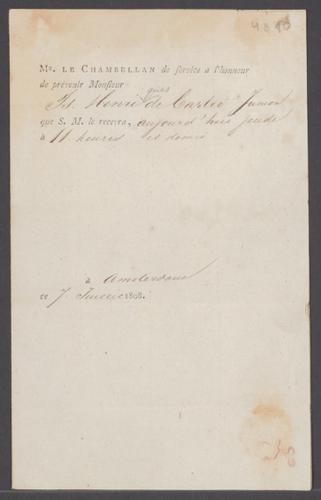 4890
Mr. LE CHAMBELLAN de service a l'honneur
de prévenir Monsieur
ques
Henri de Castro Junior
que S. M. le recevra, aujourd'hui jeudi
à 11 heures et demie
à Amsterdam
ce 7 Juillet 1808.